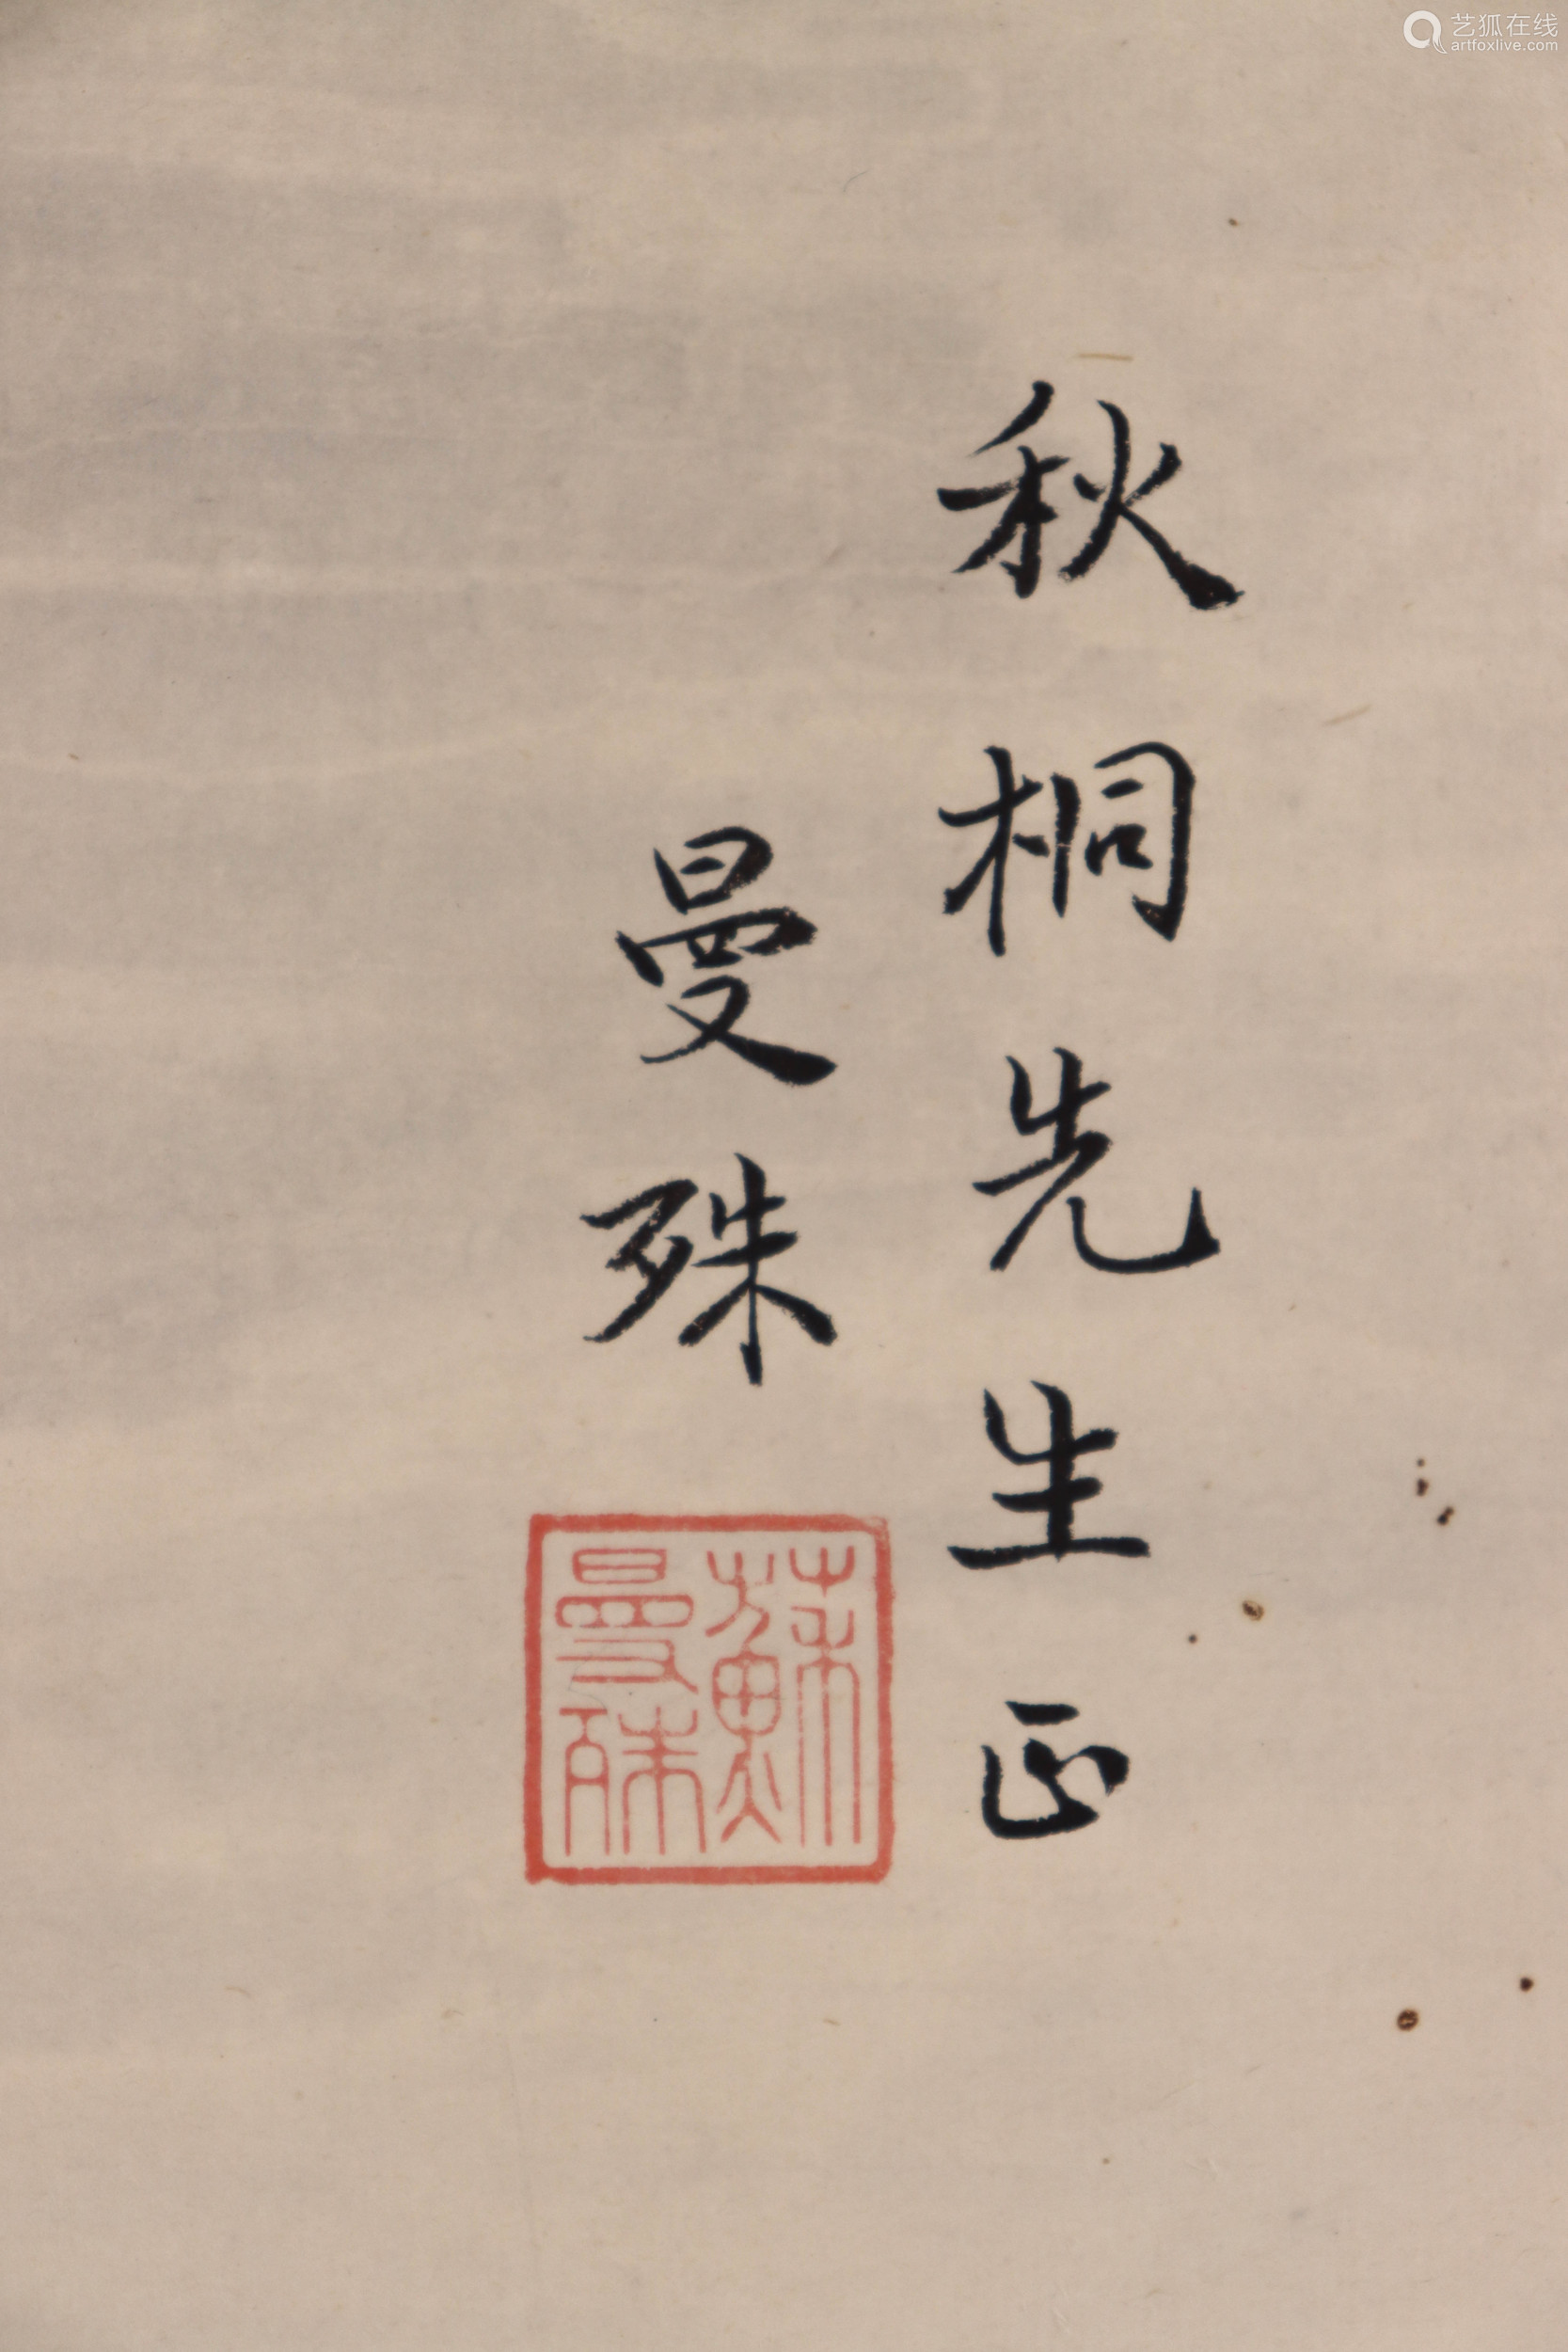 秋桐先生正
曼殊
蘇曼殊
艺狐在线
artfoxlive.com